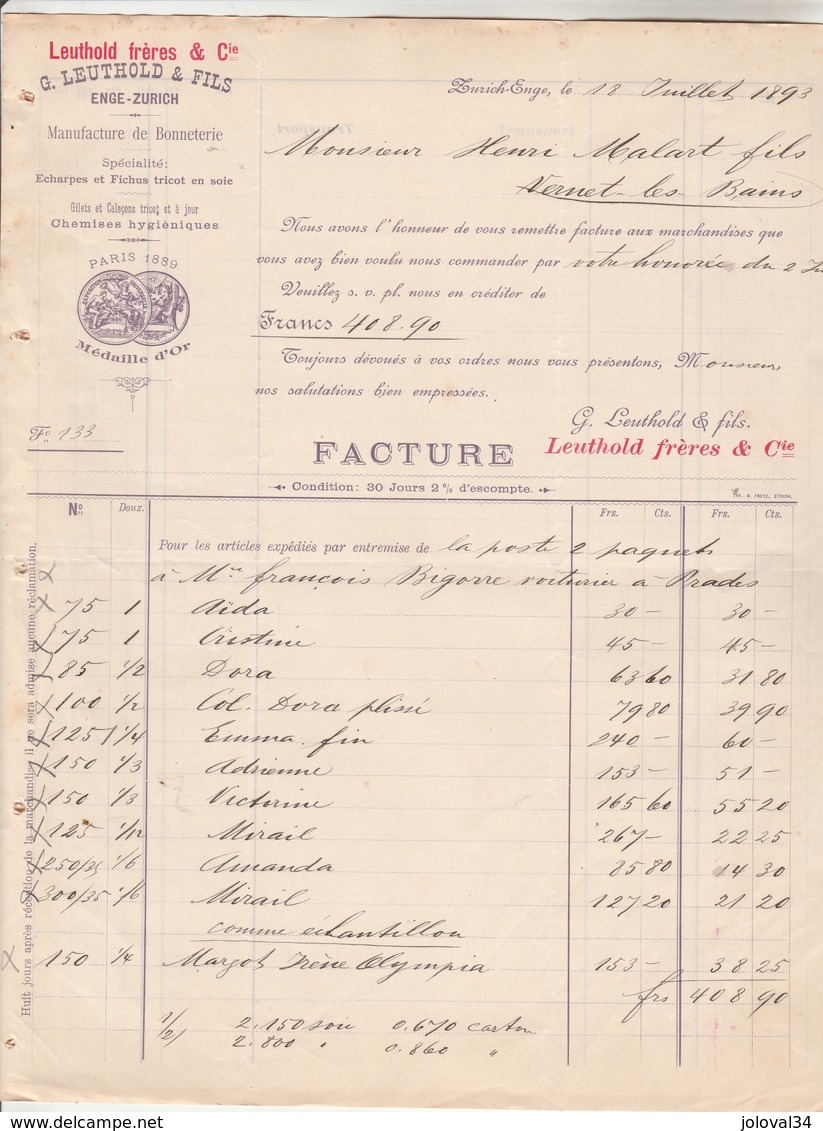 Leuthold frères & Cie
G. LEUTHOLD & FILS
ENGE-ZURICH
Manufacture de Bonneterie
Spécialité:
Echarpes et Fichus tricot en soie
Gilets et Caleçons tricot et à jour
Chemises hygiéniques
PARIS 1889
Médaille d'Or
Fo 133
Zurich-Enge, le 18 Juillet 1893
Monsieur Henri Malart fils
Vernet-les Bains
Nous avons l'honneur de vous remettre facture aux marchandises que
vous avez bien voulu nous commander par votre honorée du 2
Veuillez s. v. pl. nous en créditer de
Francs 408.90
Toujours dévoués à vos ordres nous vous présentons, Monsieur,
nos salutations bien empressées.
G. Leuthold & fils.
Leuthold frères & Cie
FACTURE
Condition: 30 Jours 2% d'escompte.
TYP. A. FRETZ, ZÜRICH.
No Douz. Frs. Cts. Frs. Cts.
Pour les articles expédiés par entremise de la poste 2 paquets
à Mr françois Bigorre voiturier à Prades
75 1 Aïda 30 — 30 —
75 1 Cristine 45 — 45 —
85 1/2 Dora 63 60 31 80
100 1/2 Col. Dora plissé 79 80 39 90
125 1/4 Emma fin 240 — 60 —
150 1/3 Adrienne 153 — 51 —
150 1/3 Victorine 165 60 55 20
125 1/12 Mirail 267 — 22 25
250/35 1/6 Amanda 85 80 14 30
300/35 1/6 Mirail 127 20 21 20
comme échantillon
150 1/4 Margot Irène Olympia 153 — 38 25
frs 408 90
1/ 2.150 soie 0.670 carton
2/ 2.800 " 0.860 "
Huit jours après réception de la marchandise il ne sera admise aucune réclamation.
http://www.delcampe.net
joloval34